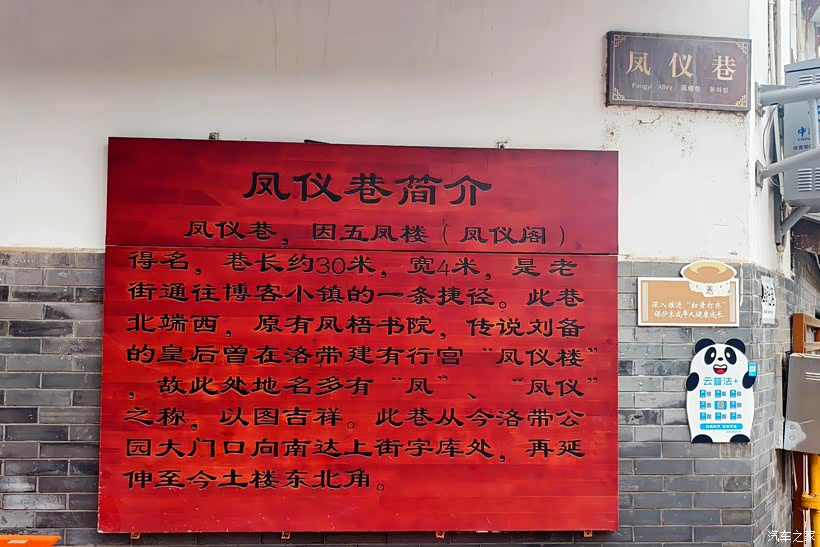 凤仪巷
Fengyi Alley
凤仪巷简介
凤仪巷，因五凤楼（凤仪阁）
得名，巷长约30米，宽4米，是老
街通往博客小镇的一条捷径。此巷
北端西，原有凤梧书院，传说刘备
的皇后曾在洛带建有行宫“凤仪楼”
，故此处地名多有“凤”、“凤仪”
之称，以图吉祥。此巷从今洛带公
园大门口向南达上街字库处，再延
伸至今土楼东北角。
深入推进“扫黄打非”
保护未成年人健康成长
云普法+
汽车之家